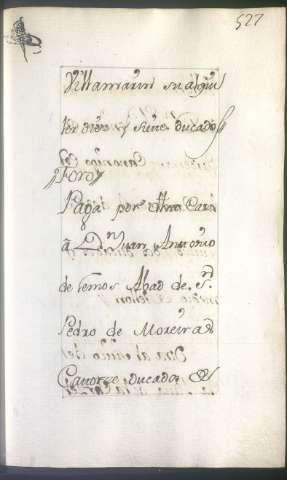 527
Villamarin su alquil
ler diez y siete ducados
Foro
Paga por otra Casa
à Dn. Juan Antonio
de Lemos Abad de Sn.
Pedro de Moreiras
Catorze ducados